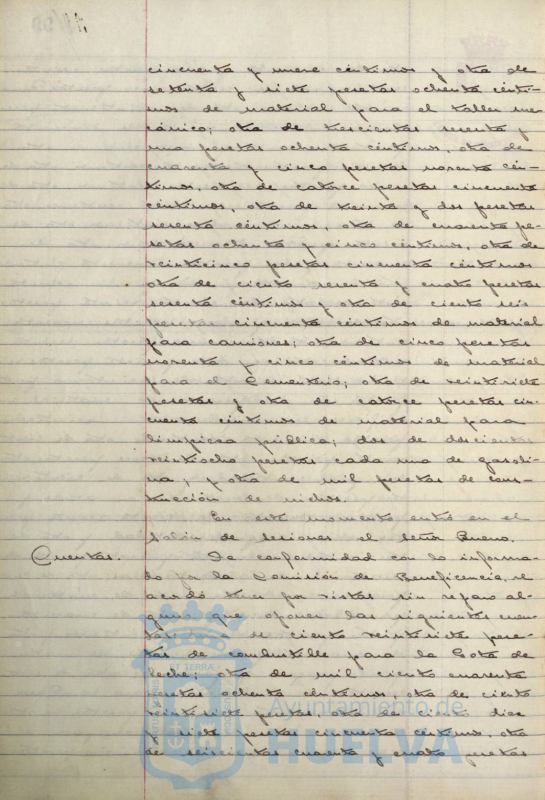 cincuenta y nueve céntimos y otra de
setenta y siete pesetas ochenta cénti-
mos de material para el taller me-
cánico; otra de trescientas sesenta y
una pesetas ochenta céntimos, otra de
cuarenta y cinco pesetas noventa cén-
timos, otra de catorce pesetas cincuenta
céntimos, otra de treinta y dos pesetas
sesenta céntimos, otra de cuarenta pe-
setas ochenta y cinco céntimos, otra de
veinticinco pesetas cincuenta céntimos
otra de ciento sesenta y cuatro pesetas
sesenta céntimos y otra de ciento seis
pesetas cincuenta céntimos de material
para camiones; otra de cinco pesetas
noventa y cinco céntimos de material
para el Cementerio; otra de veintisiete
pesetas y otra de catorce pesetas cin-
cuenta céntimos de material para
limpieza pública; dos de doscientas
veintiocho pesetas cada una de gasoli-
na; y otra de mil pesetas de cons-
trucción de nichos.
En este momento entró en el
Salón de sesiones el señor Bueno.
Cuentas. De conformidad con lo informa-
do por la Comisión de Beneficencia, se
acordó tener por vistas sin reparo al-
guno que oponer las siguientes cuen-
tas: de ciento veintisiete pese-
tas de combustible para la Gota de
leche; otra de mil ciento cuarenta
pesetas ochenta céntimos, otra de ciento
veintisiete pesetas, otra de ciento diez
y siete pesetas cincuenta céntimos, otra
de seiscientas cuarenta y cuatro pesetas
Ayuntamiento de
HUELVA